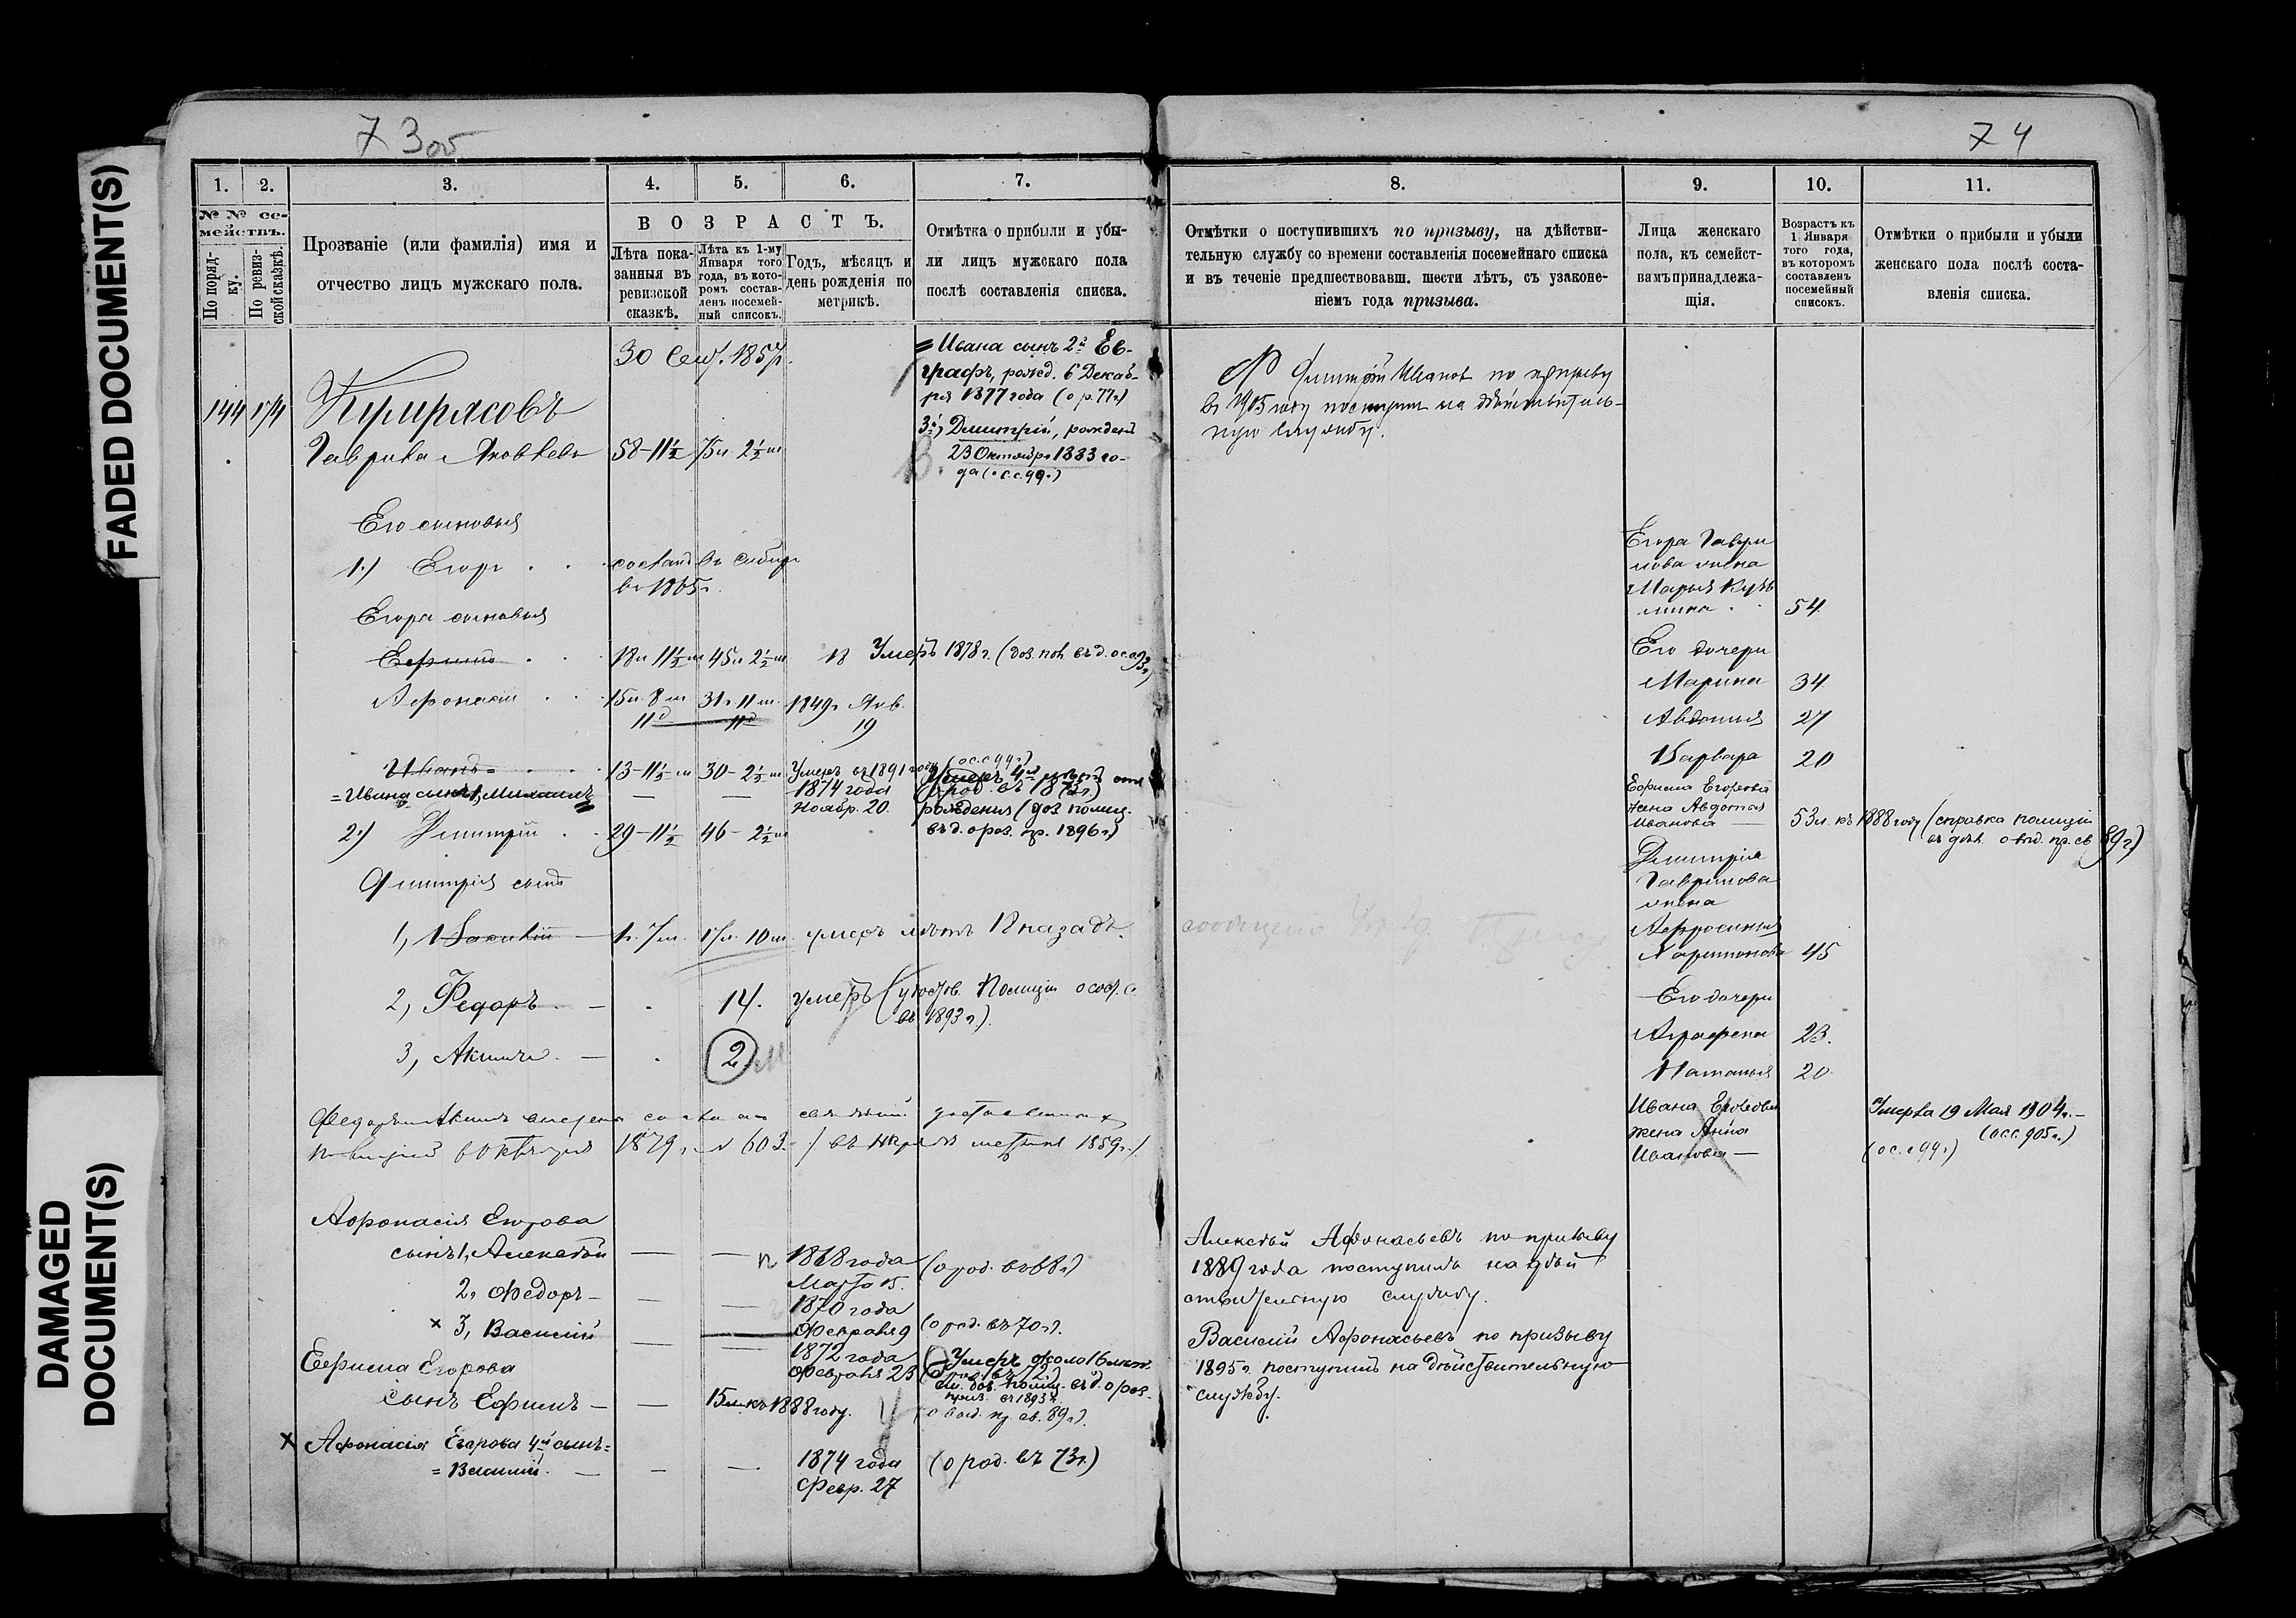 FADED DOCUMENT(S)
DAMAGED
DOCUMENT(S)
73об
1. 2. 3. 4. 5. 6. 7.
№ № се-
мействъ.
По поряд-
ку.
По ревиз-
ской сказкѣ.
Прозваніе (или фамилія) имя и
отчество лицъ мужскаго пола.
ВОЗРАСТЪ.
Лѣта пока-
занныя въ
ревизской
сказкѣ.
Лѣта къ 1-му
Января того
года, въ кото-
ромъ состав-
ленъ посемей-
ный списокъ.
Годъ, мѣсяцъ и
день рожденія по
метрикѣ.
Отмѣтка о прибыли и убы-
ли лицъ мужскаго пола
послѣ составленія списка.
144 174
30 1857
Гаврила Яковлевъ 58-11½ 75л 2½м
= Ивана сынъ 2й Ев-
графъ, рожд. 6 Декаб-
ря 1877 года (о р. 77г)
3й, Дмитрій, рожденъ
23 Октября 1883 го-
да (о.с.с. 99г.)
Его сыновья
1.) Егоръ въ Сибирь
въ 1865г.
Егора сыновья
Ефимъ 18л 11½м 45л 2½м 18 Умеръ 1878г. (доз. пол. въ д.
Афонасій 15л. 8м 31г. 11м. 1849г. Янв.
11д 11д 19
Иванъ 13-11½м 30-2½м Умеръ въ 1891 году (о.с.с. 99г)
= Ивана сынъ 1, Михаилъ — — 1874 года
Ноябр. 20.
(о род. въ 1873г.)
Умеръ 4хъ лѣтъ отъ
рожденія (доз. полиц.
въ д. о роз. пр. 1896г)
2.) Дмитрій 29-11½ 46-2½м
Дмитрія сынъ
1, 1г. 7м. 17л. 10м. умеръ лѣтъ 12 назадъ.
2, Федоръ — 14. умеръ (удостов. Полиціи
въ 1893г.)
3, Акимъ — 2
Федоръ и Акимъ
1879г. № 603
1859г.)
Афонасія Егорова
сынъ 1, Алексѣй — — 1868 года (о род. въ 68г)
Марта 15.
2, Федоръ — — — 1870 года
Февраля 9 (о род. въ 70г).
× 3, Василій — — 1872 года
Февраля 23 (о род. въ 72)
Умеръ около 16 лѣт.
см. доз. полиц. въ д. о роз.
приз. въ 1893г.
Ефима Егорова
сынъ Ефимъ — — 15л. къ 1888 году. (о выд. пр. св. 89г).
× Афонасія Егорова 4й сынъ =
= Василій. — — — 1874 года (о род. въ 73г.)
Февр. 27
74
8. 9. 10. 11.
Отмѣтки о поступившихъ по призыву, на дѣйстви-
тельную службу со времени составленія посемейнаго списка
и въ теченіе предшествовавш. шести лѣтъ, съ узаконе-
ніемъ года призыва.
Лица женскаго
пола, къ семейст-
вамъ принадлежа-
щія.
Возрастъ къ
1 Января
того года,
въ которомъ
составленъ
посемейный
списокъ.
Отмѣтки о прибыли и убыли
женскаго пола послѣ соста-
вленія списка.
Дмитрій Иванов по призыву
въ 1905 году поступил на дѣйствитель-
ную службу.
Егора Гаври
лова жена
Марья Кузь
мина 54
Его дочери
Марина 34
Авдотья 27
Варвара 20
Ефима Егорова
жена Авдотья
Иванова — 53л. къ 1888 году (справка полиціи
въ дѣл. о выд. пр. св 89г)
Дмитрія
Гаврилова
жена
Афросинья
Харитонова 45
Его дочери
Аграфена 23.
Наталья 20
Ивана Егорова
жена Анна
Иванова —
Умерла 19 Мая 1904г. —
(о.с.с. 905г.)
(о с. с 99г)
Алексѣй Афонасьевъ по призыву
1889 года поступилъ на дѣй
ствительную службу.
Василий Афонасьевъ по призыву
1895г. поступилъ на дѣйствительную
службу.